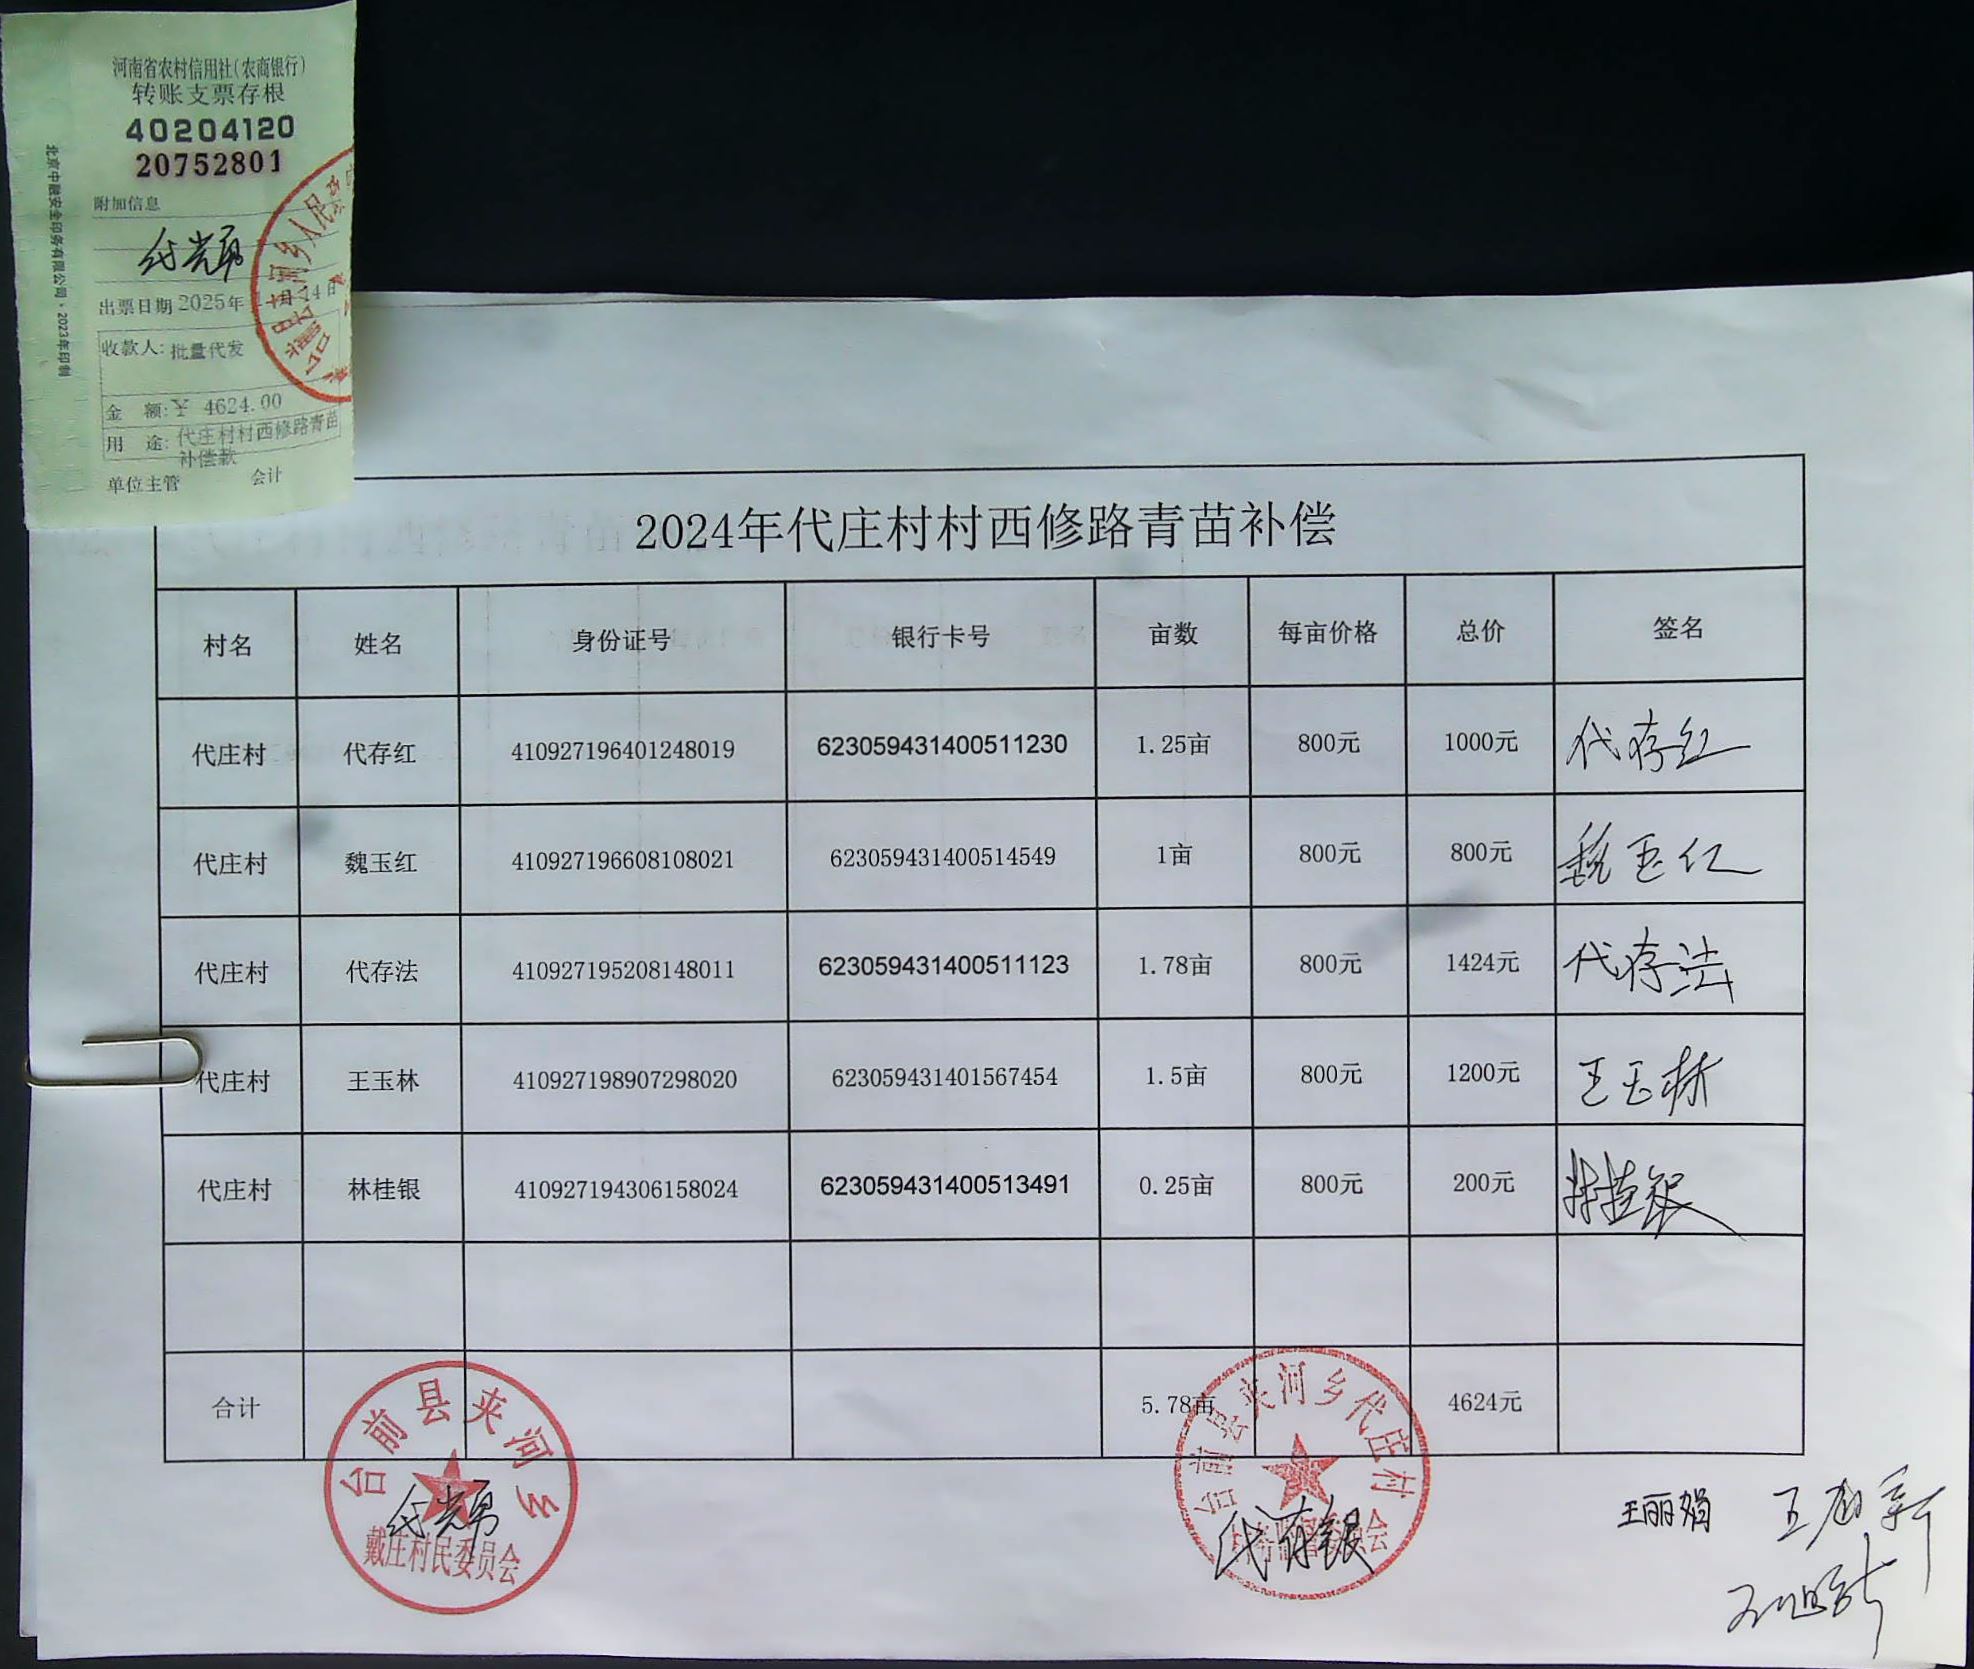 河南省农村信用社(农商银行)
转账支票存根
40204120
20752801
附加信息
北京中融安全印务有限公司·2023年印制
出票日期 2025年 14日
收款人: 批量代发
金 额: ¥ 4624.00
用 途: 代庄村村西修路青苗
补偿款
单位主管 会计
2024年代庄村村西修路青苗补偿
村名 姓名 身份证号 银行卡号 亩数 每亩价格 总价 签名
代庄村 代存红 410927196401248019 623059431400511230 1.25亩 800元 1000元 代存红
代庄村 魏玉红 410927196608108021 623059431400514549 1亩 800元 800元 魏玉红
代庄村 代存法 410927195208148011 623059431400511123 1.78亩 800元 1424元 代存法
代庄村 王玉林 410927198907298020 623059431401567454 1.5亩 800元 1200元 王玉林
代庄村 林桂银 410927194306158024 623059431400513491 0.25亩 800元 200元 林桂银
合计 5.78亩 4624元
台前县夹河乡
戴庄村民委员会
台前县夹河乡代庄村
代存银
王丽娟